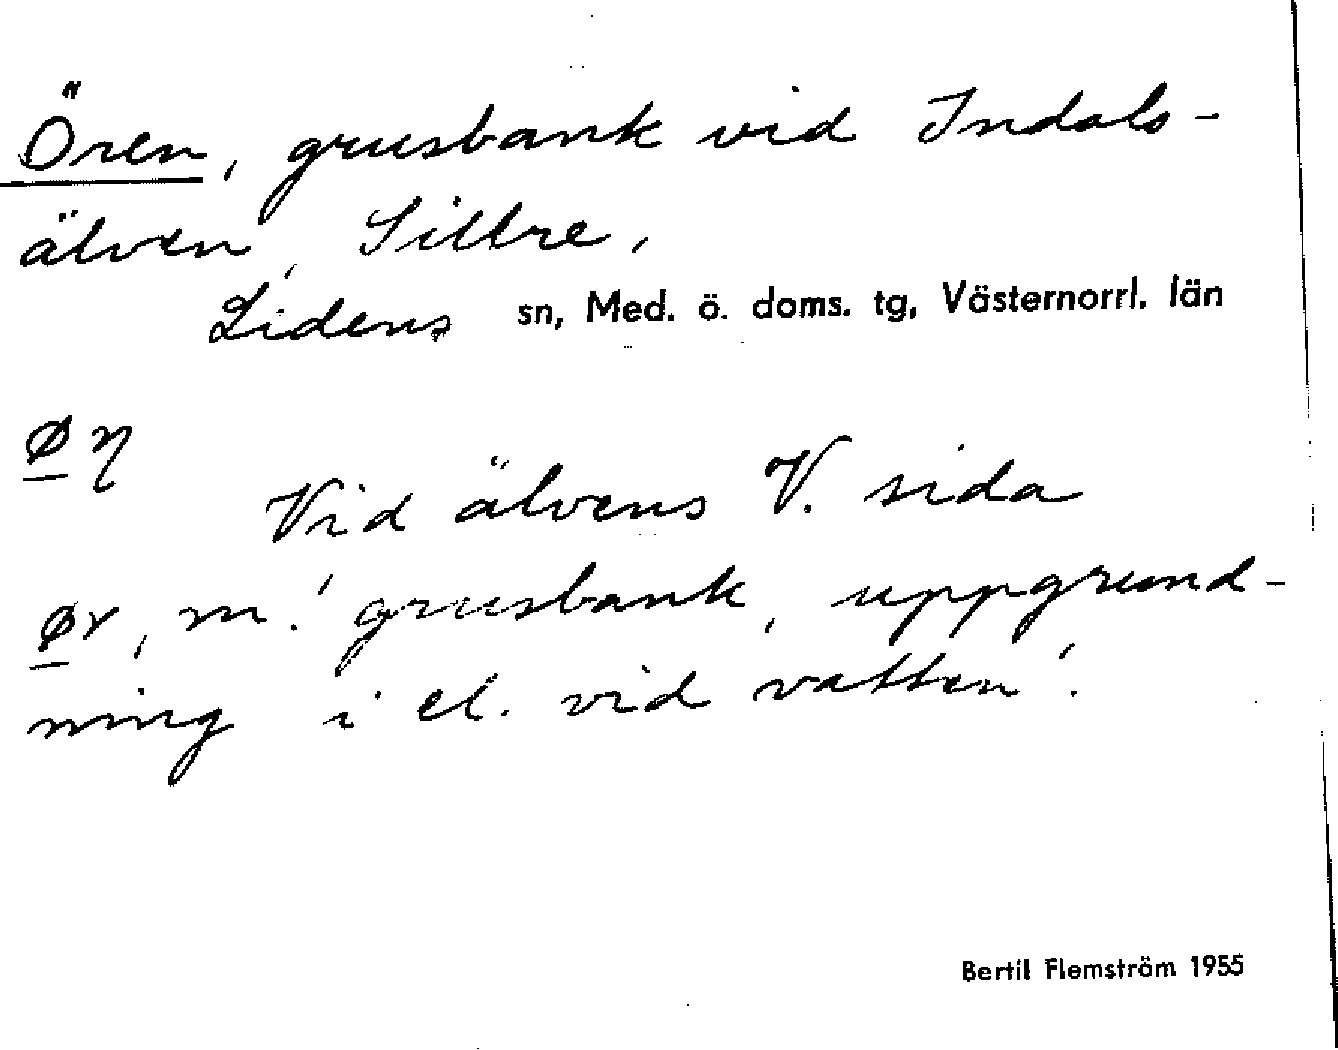 Ören, grusbank vid Indals-
älven, Sillre,
Lidens sn, Med. ö. doms. tg, Västernorrl. län
øη
Vid älvens V. sida
ør, m. 'grusbank, uppgrund-
ning i el. vid vatten'.
Bertil Flemström 1955